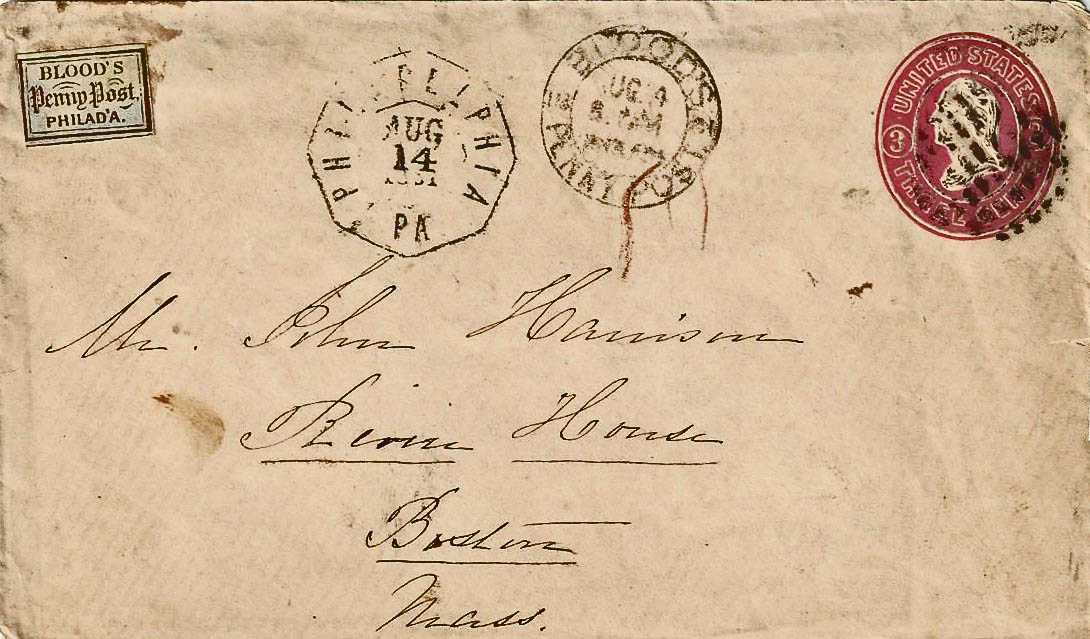 BLOOD'S
Penny Post.
PHILAD'A.
PHILADELPHIA
AUG
14
PA
BLOOD'S
AUG
UNITED STATES
3
THREE CENTS
Mr. John Harrison
House
Boston
Mass.